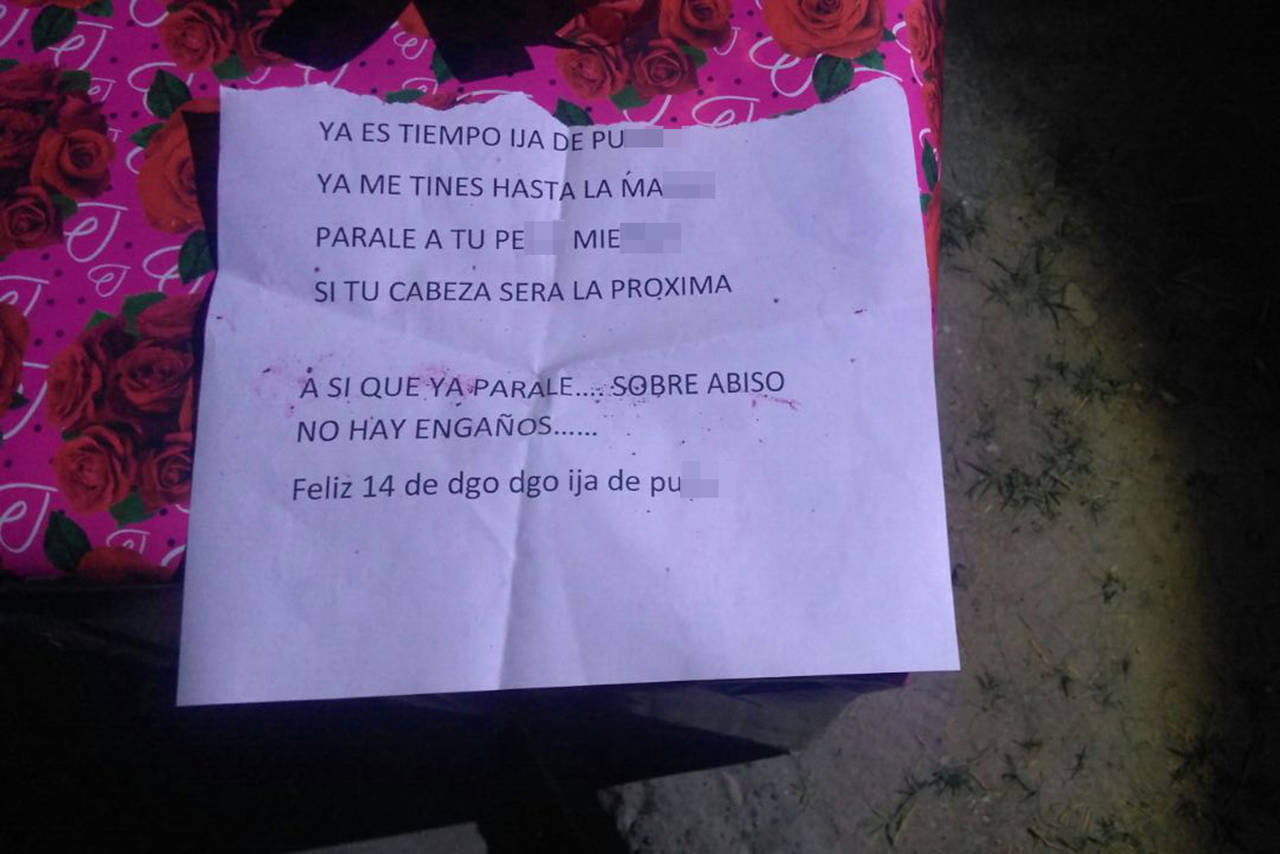 YA ES TIEMPO IJA DE PU
YA ME TINES HASTA LA MA
PARALE A TU PE MIE
SI TU CABEZA SERA LA PROXIMA
A SI QUE YA PARALE.... SOBRE ABISO
NO HAY ENGAÑOS......
Feliz 14 de dgo dgo ija de pu